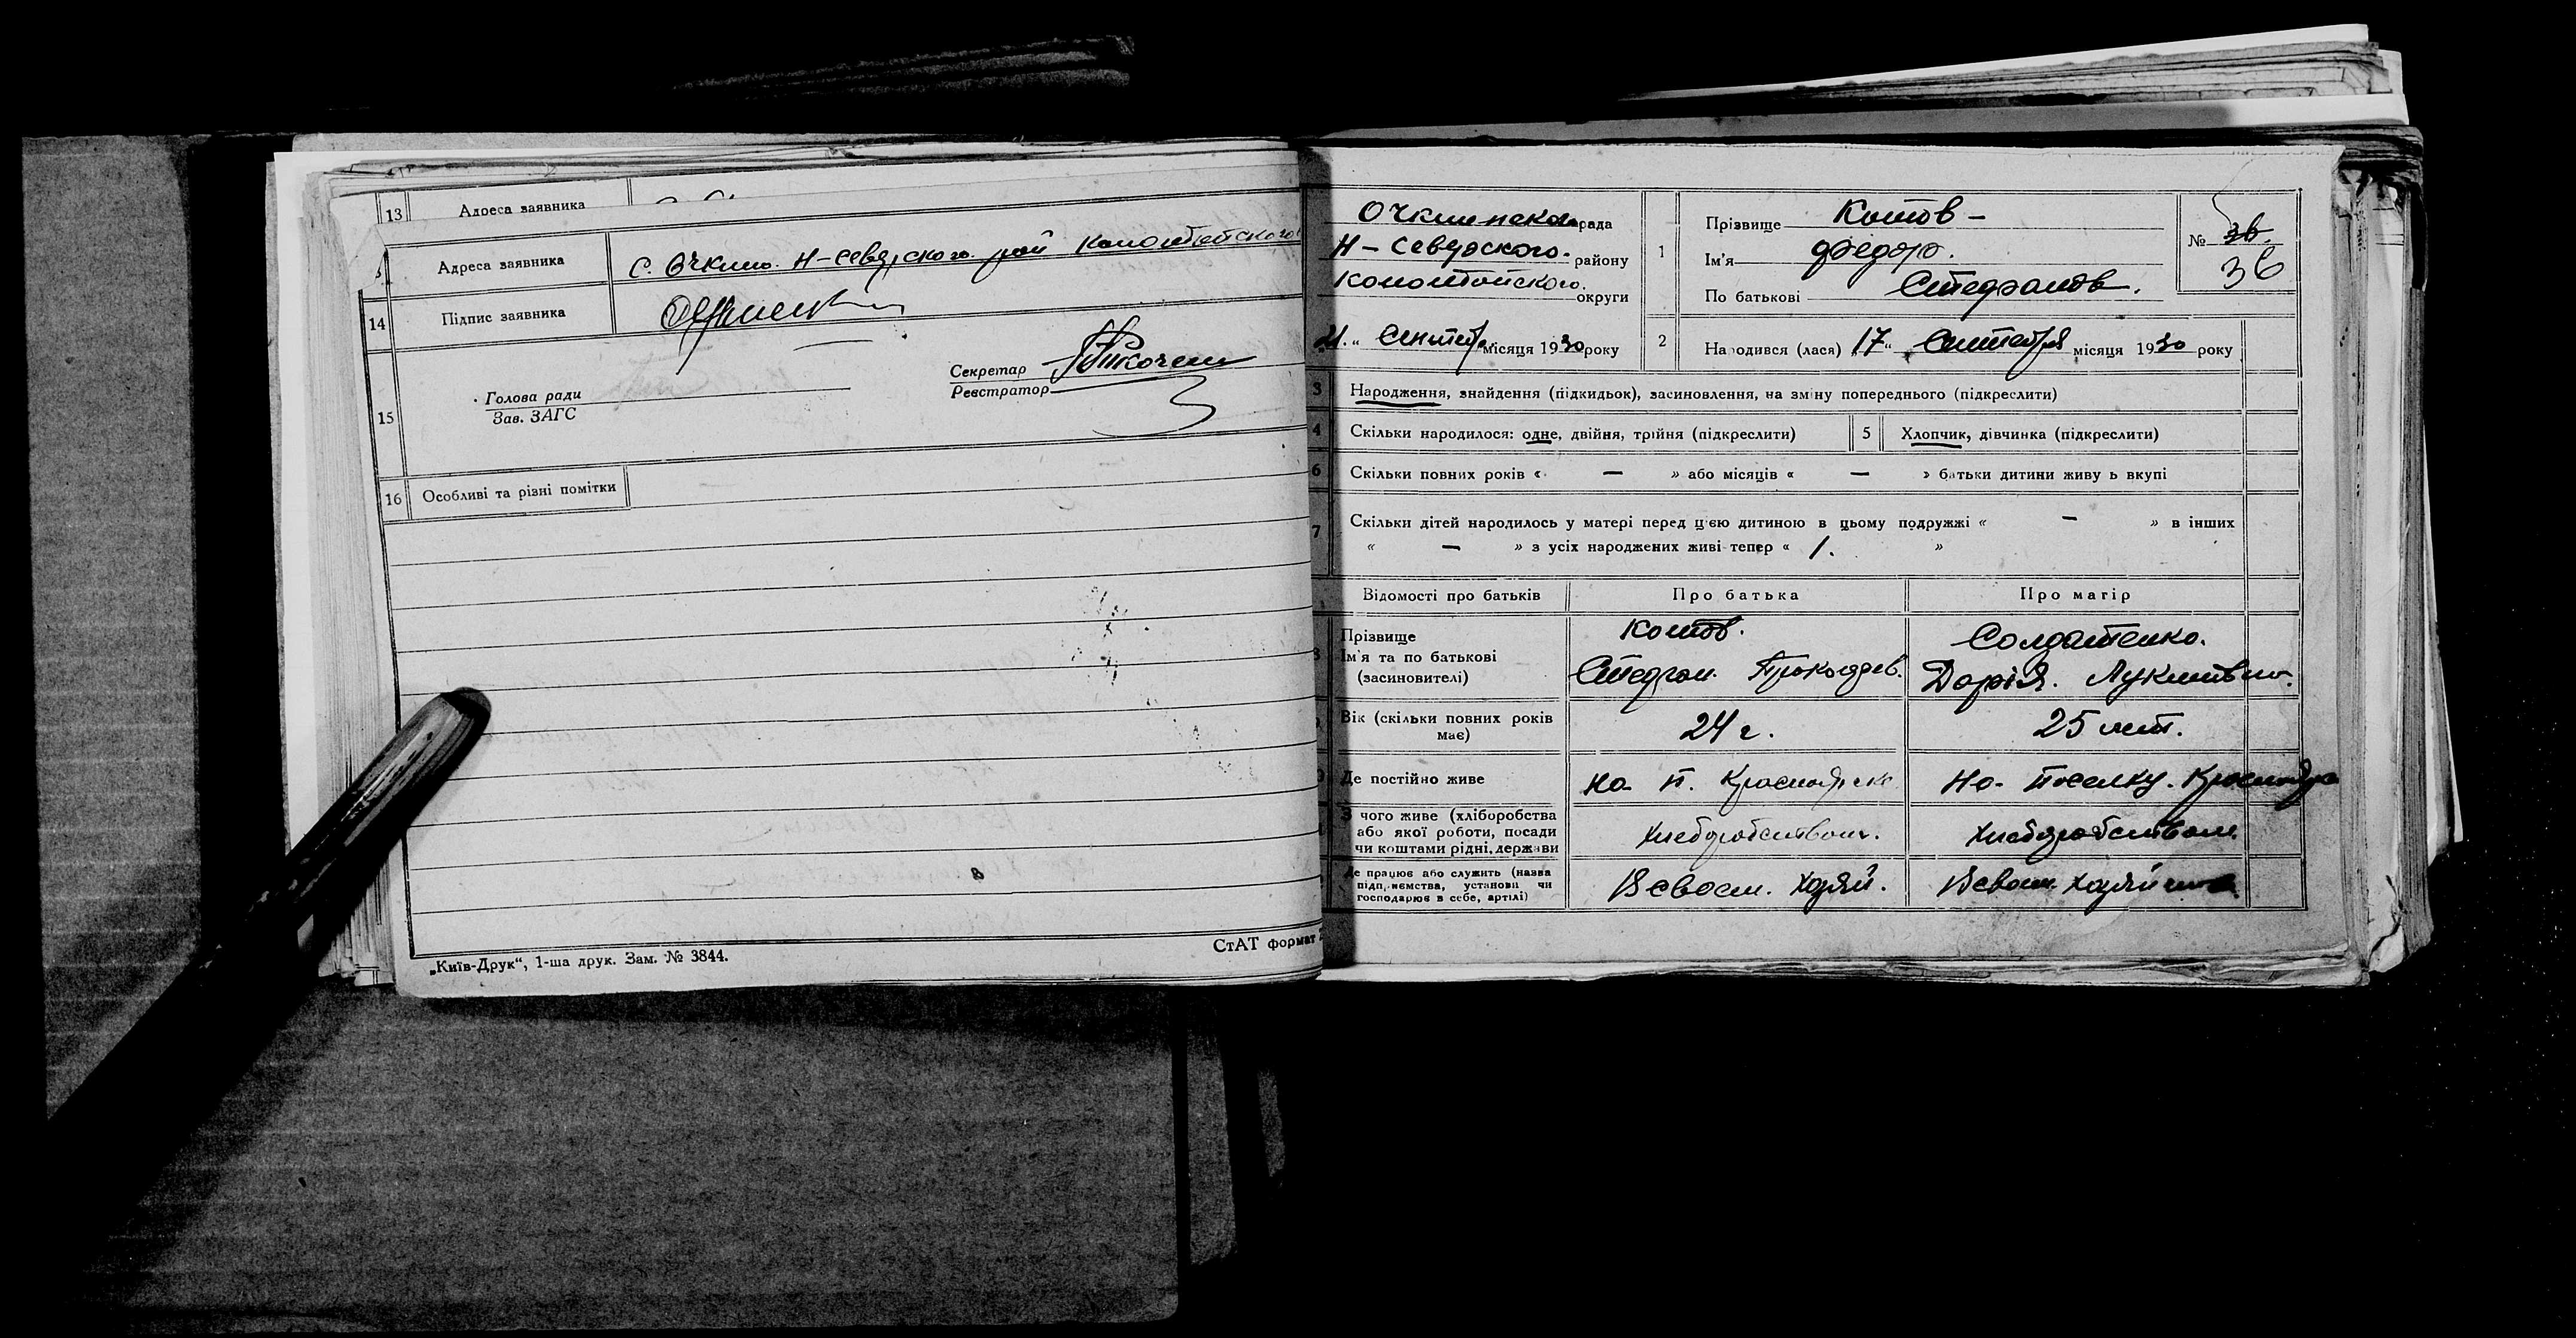 13 Адреса заявника
Адреса заявника С. Очкино Н-Северского рай Конотопского
14 Підпис заявника
15 Голова ради
Зав. ЗАГС
Секретар
Реєстратор
16 Особливі та різні помітки
„Київ-Друк“, 1-ша друк. Зам. № 3844.
СтАТ формат
Очкинская рада
Н-Северского району
Конотопского округи
21 " Сентяб місяця 1930 року
1 Прізвище Котов -
Ім'я Федор.
По батькові Стефанов.
№ 36.
36
2 Народився (лася) 17 " Сентебря місяця 1930 року
3 Народження, знайдення (підкидьок), засиновлення, на зміну попереднього (підкреслити)
4 Скільки народилося: одне, двійня, трійня (підкреслити)
5 Хлопчик, дівчинка (підкреслити)
6 Скільки повних років « — » або місяців « — » батьки дитини живу ь вкупі
7 Скільки дітей народилось у матері перед цією дитиною в цьому подружжі « — » в інших
« — » з усіх народжених живі тепер « 1. »
Відомості про батьків
Про батька
Про матір
Прізвище
Ім'я та по батькові
(засиновителі)
Котов.
Стефан. Прокофев.
Солдатенко.
Дарія.
Вік (скільки повних років має)
24 г.
25 лет.
Де постійно живе
на п. Красноярске
на поселку. Краснояр
З чого живе (хліборобства
або якої роботи, посади
чи коштами рідні, держави
хлеборобством.
хлеборобством.
Де працює або служить (назва
підприємства, установи чи
господарює в себе, артілі)
В своем. хозяй.
В своем. хозяй